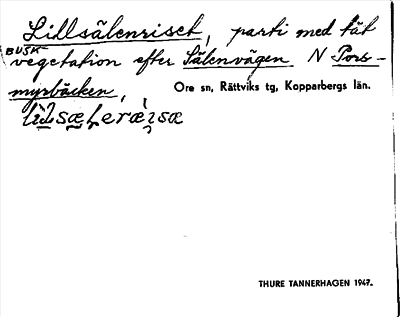 Lillsälenriset, parti med tät
BUSK-
vegetation efter Sälenvägen N Pors-
myrbäcken,
Ore sn, Rättviks tg, Kopparbergs län.
THURE TANNERHAGEN 1947.